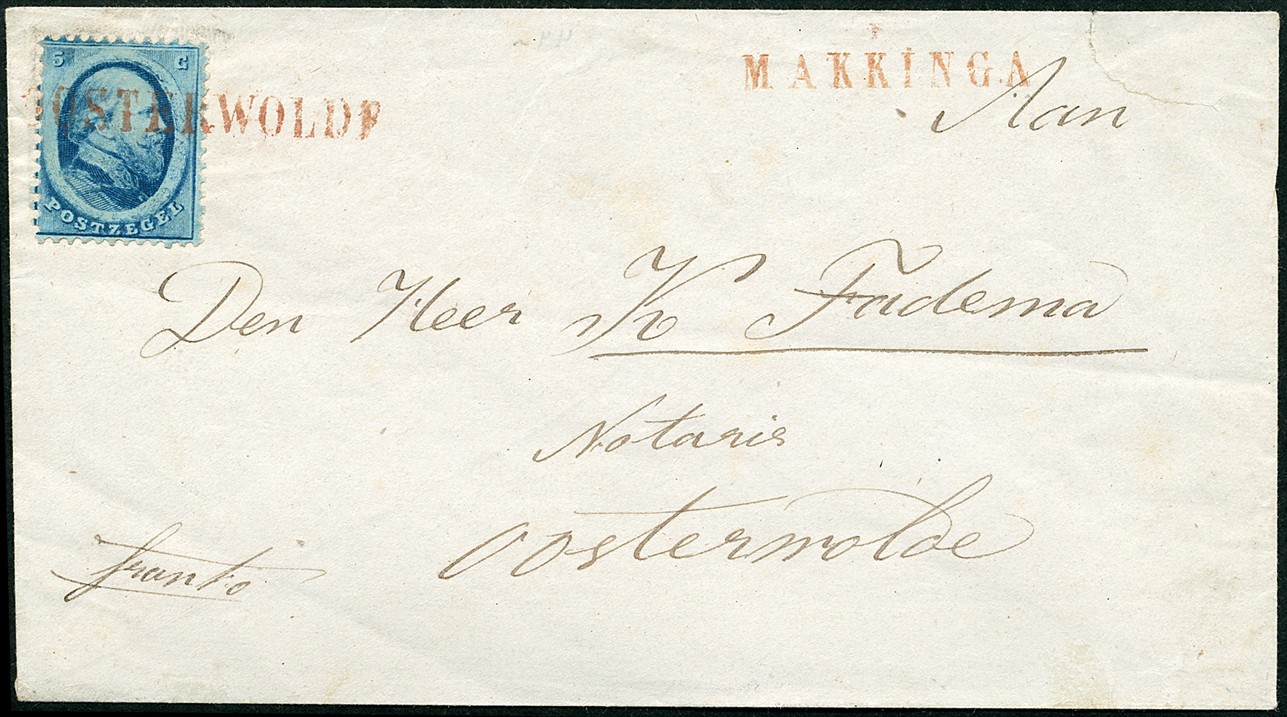 5 C
POSTZEGEL
OOSTERWOLDE
MAKKINGA
Aan
Den Heer K Fadema
Notaris
Oosterwolde
franko